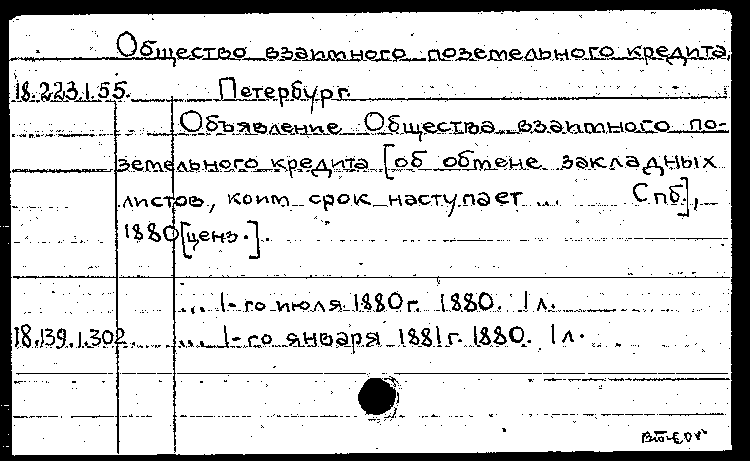 Общество взаимного поземельного кредита,
18.223.1.55. Петербург.
Объявление Общества взаимного по-
земельного кредита [об обмене закладных
листов, коим срок наступает ... Спб],
1880 [ценз.].
... 1-го июля 1880 г. 1880. 1 л.
18.139.1.302. ... 1-го января 1881 г. 1880. 1 л.